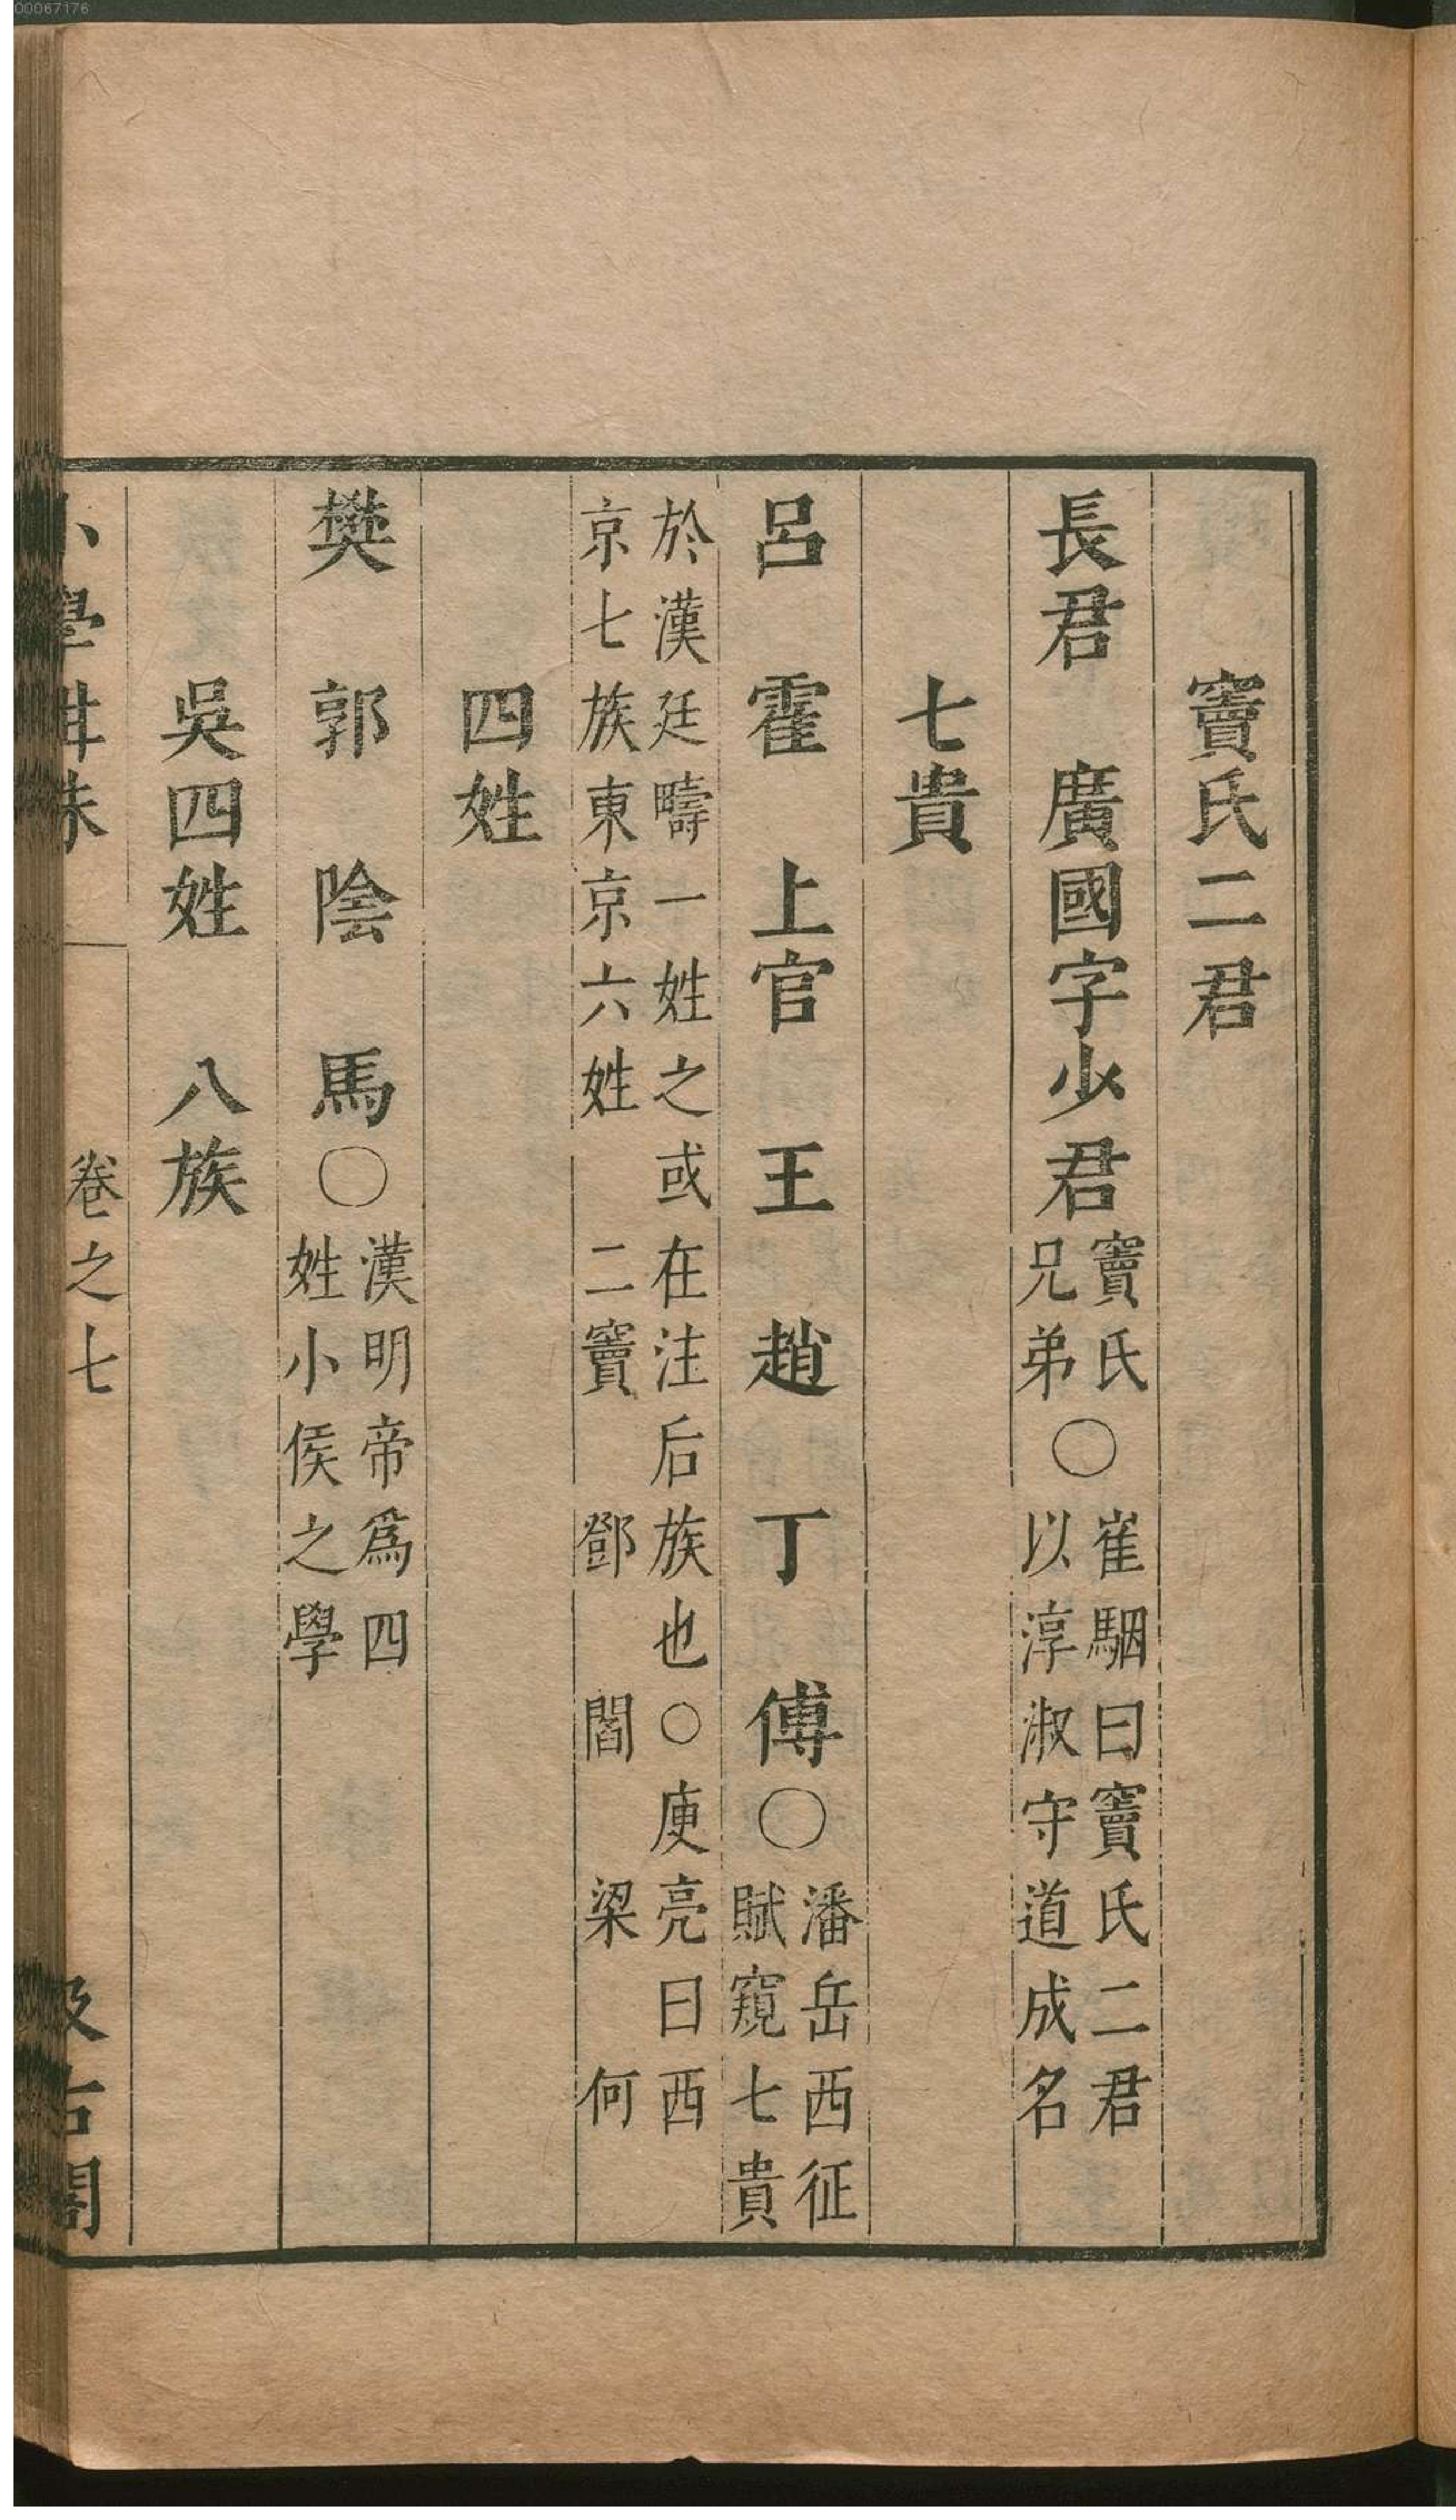 00067176
竇氏二君
長君　廣國字少君竇氏兄弟○崔駰曰竇氏二君以淳淑守道成名
七貴
呂　霍　上官　王　趙　丁　傅○潘岳西征賦窺七貴
於漢廷疇一姓之或在注后族也○庾亮曰西
京七族東京六姓　二竇　鄧　閻　梁　何
四姓
樊　郭　陰　馬○漢明帝爲四姓小侯之學
吳四姓　八族
小學紺珠　卷之七　汲古閣